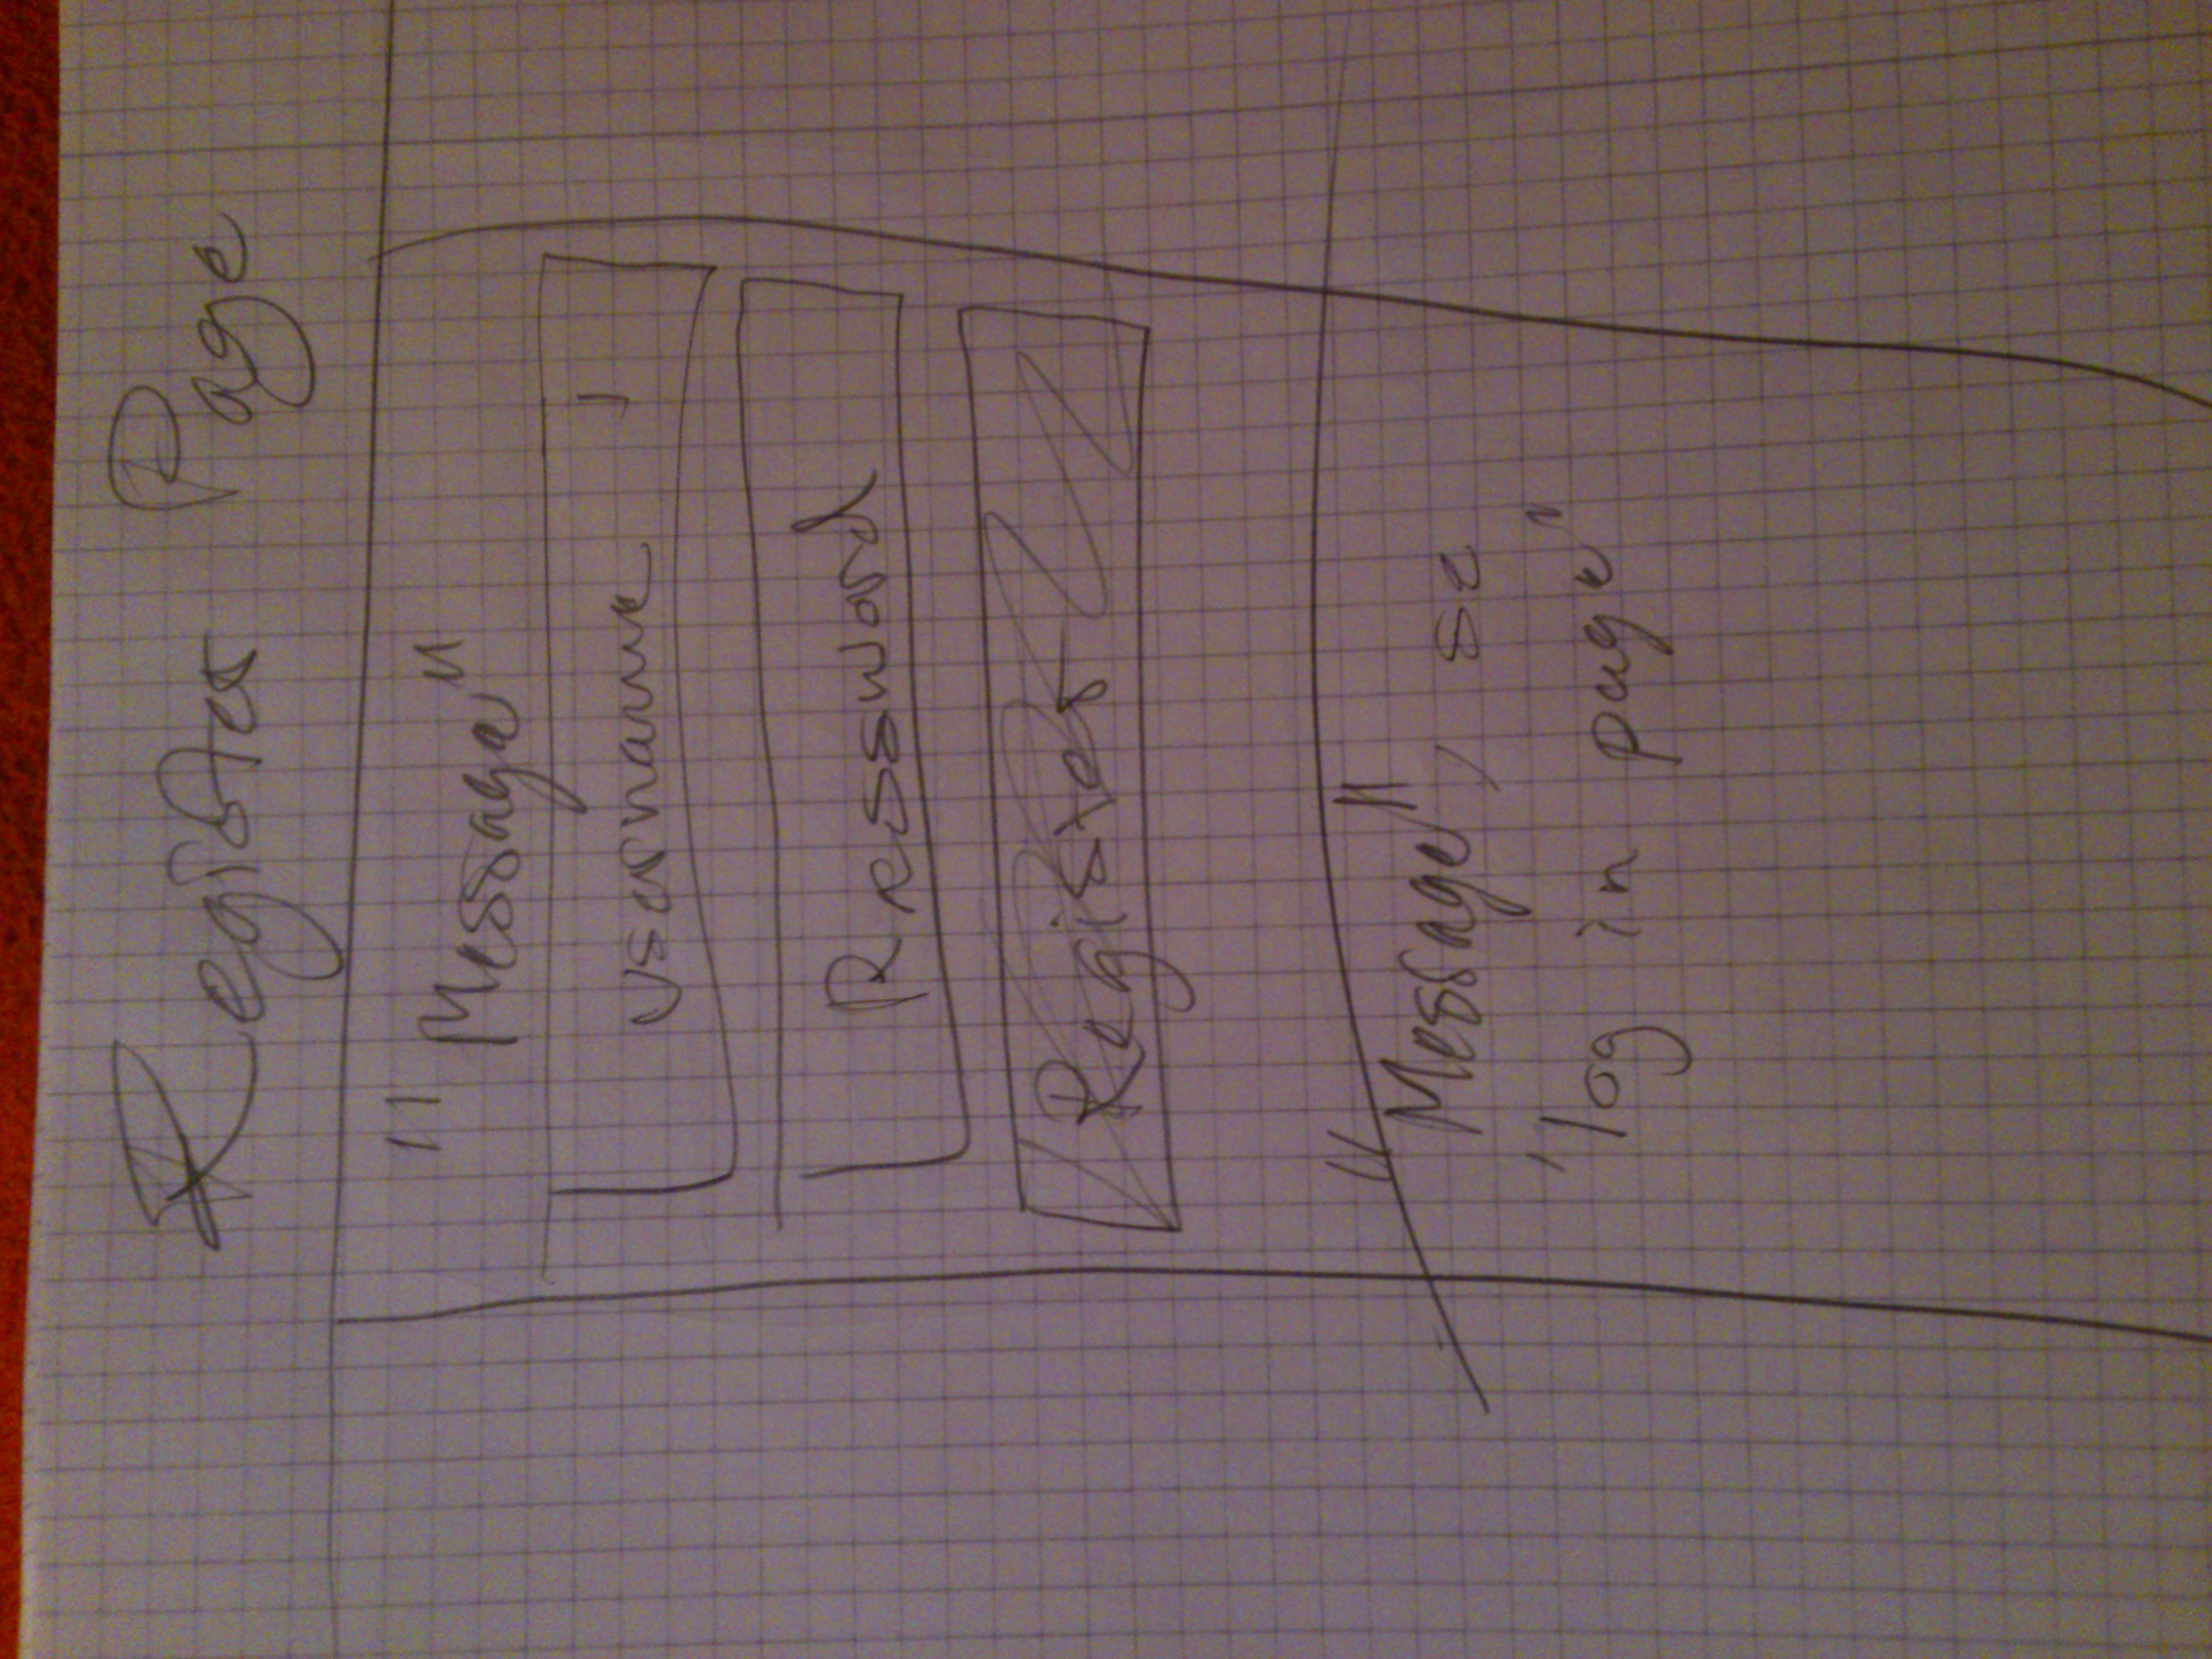 Register Page
"Message"
username
Password
Register
"Message", se
"log in page"